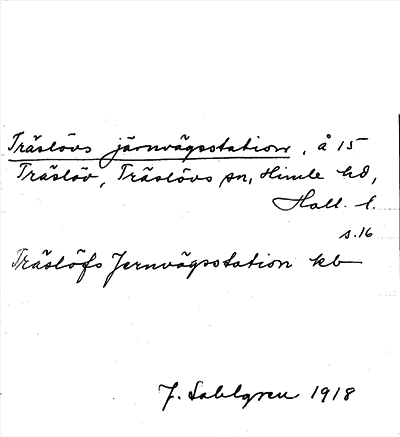 Träslövs järnvägsstation, å 15
Träslöv, Träslövs sn, Himle hd,
Hall. l.
s. 16
Träslöfs Jernvägsstation kb
J. Sahlgren 1918